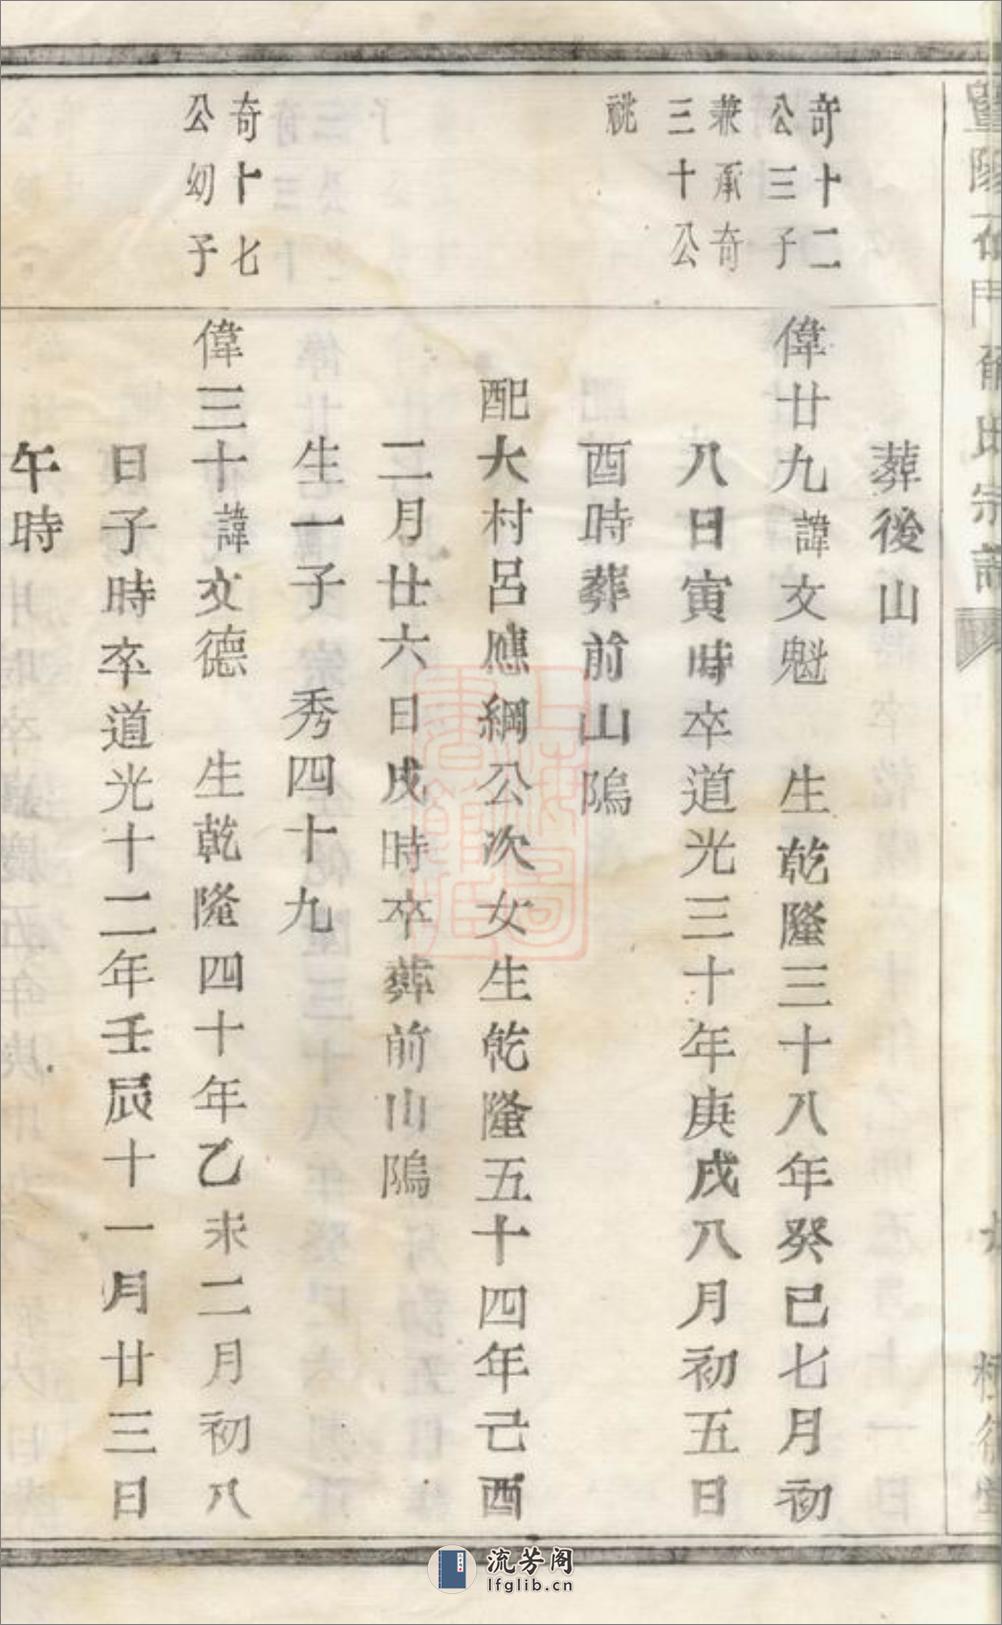 葬後山
奇十二
公三子
兼承奇
三十公
祧
偉廿九諱文魁 生乾隆三十八年癸巳七月初
八日寅時卒道光三十年庚戌八月初五日
酉時葬前山隖
配大村呂應綱公次女生乾隆五十四年己酉
二月廿六日戌時卒葬前山隖
生一子 秀四十九
奇十七
公幼子
偉三十諱文德 生乾隆四十年乙未二月初八
日子時卒道光十二年壬辰十一月廿三日
午時
流芳阁
lfglib.cn